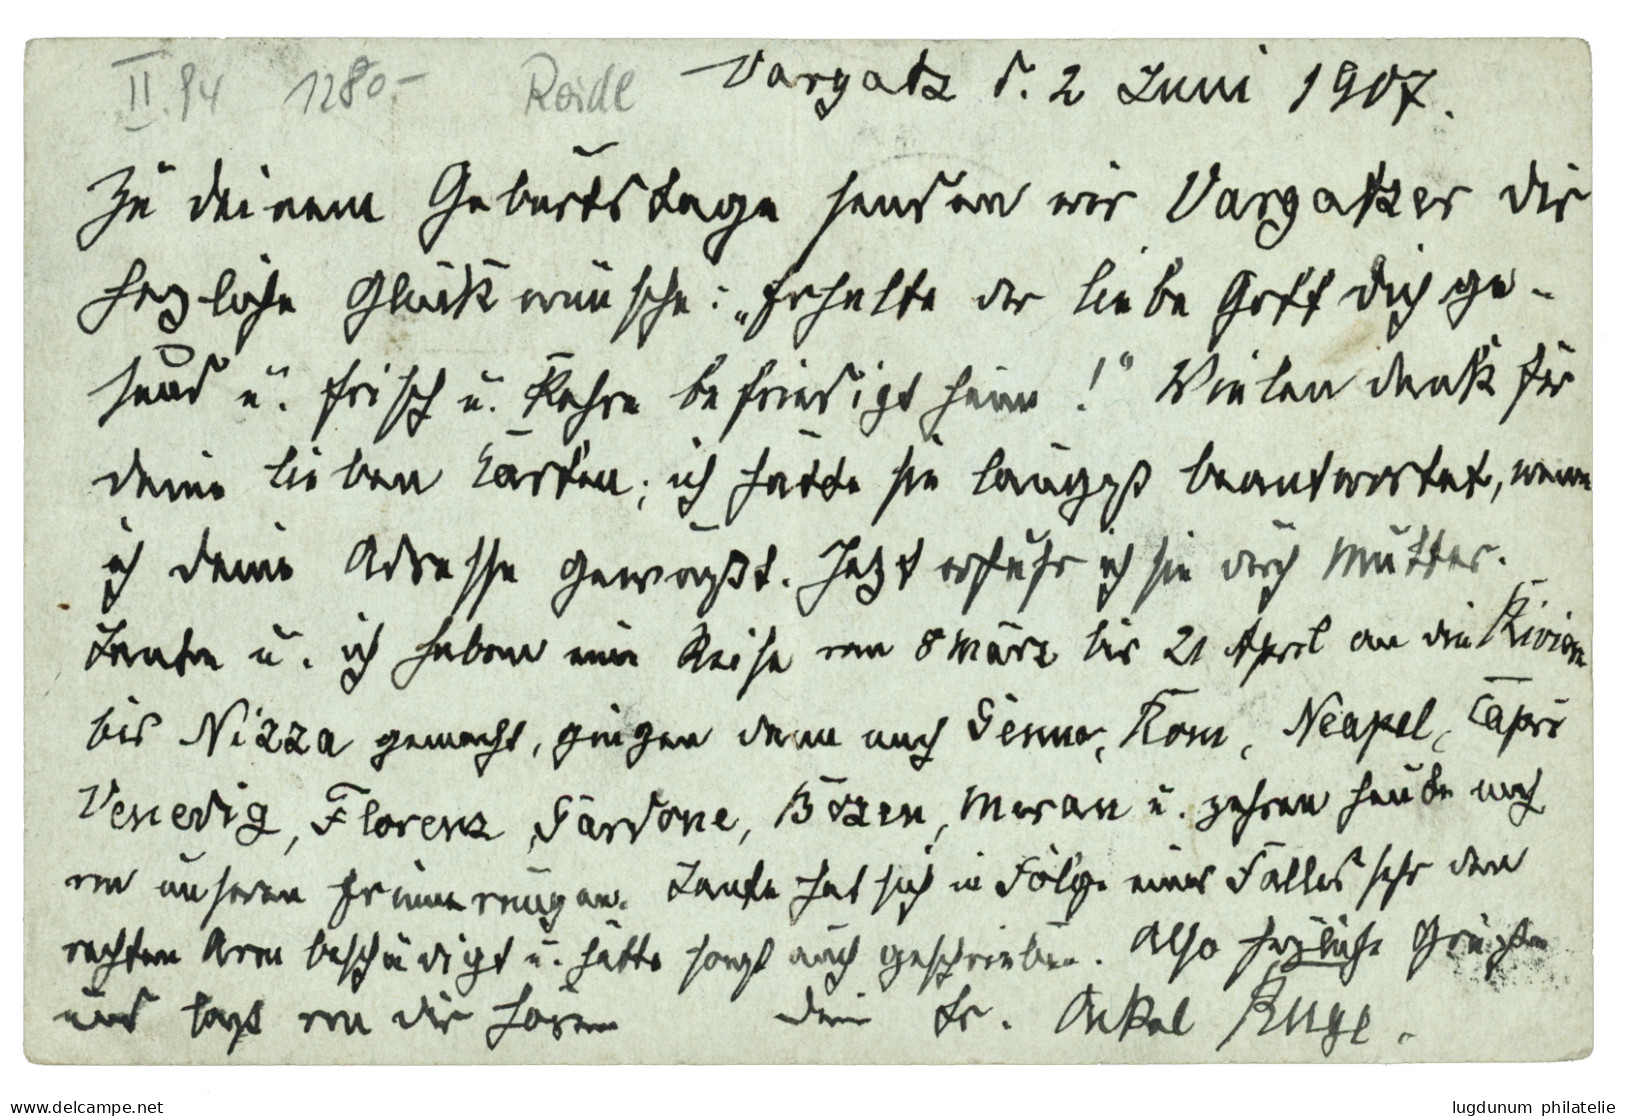 II.94 1280- Reidl Vargatz d. 2 Juni 1907.
Zu deinem Geburtstage senden wir Vargatzer dir
herzliche Glückwünsche: „Erhalte der liebe Gott dich ge-
sund u. frisch u. kehre befriedigt heim!“ Vielen dank für
deine lieben Karten; ich hätte sie längst beantwortet, wenn
ich deine Adresse gewußt. Jetzt erfuhr ich sie durch Mutter.
Tante u. ich haben eine Reise vom 8 März bis 21 April an die Riviera
bis Nizza gemacht, gingen dann nach Genua, Rom, Neapel, Capri
Venedig, Florenz, Gardone, Bozen, Meran u. zehren heute noch
von unseren Erinnerungen. Tante hat sich in Folge eines Falles sehr den
rechten Arm beschädigt u. hätte sonst auch geschrieben. Also herzliche Grüße
und laß von dir hören dein tr. Onkel Ruge.
www.delcampe.net
lugdunum philatelie